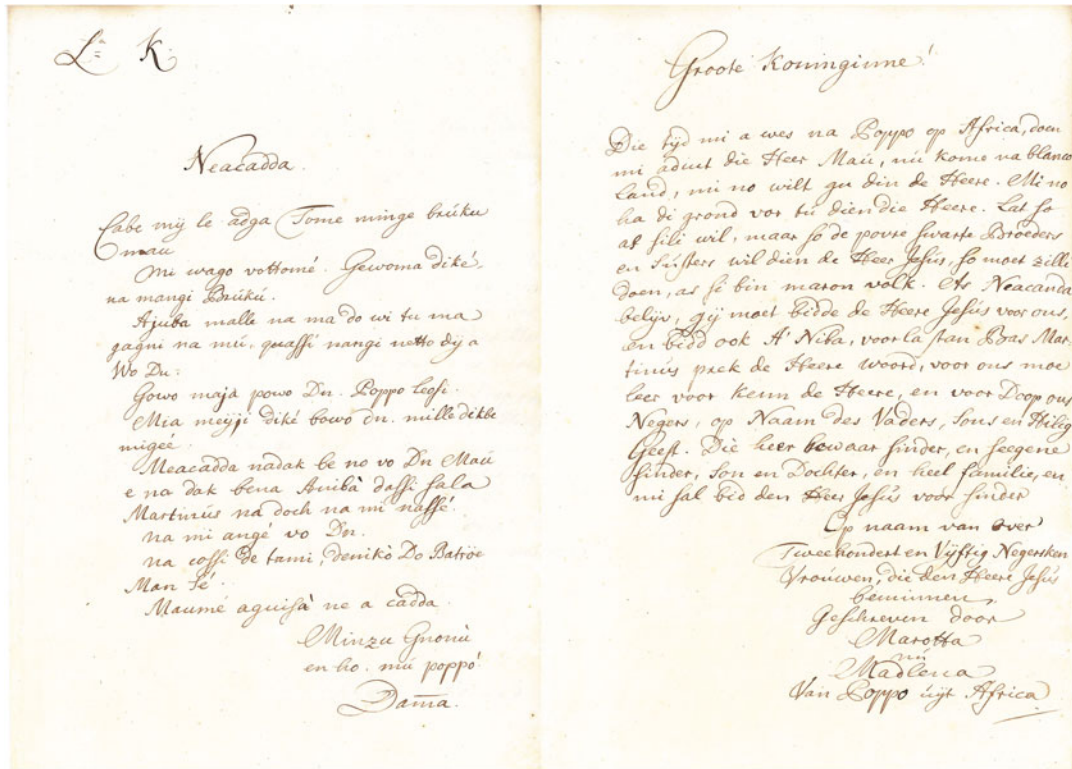 Lra K.
Neacadda.
Cabe mij le adga Tome minge brúku
mau
Mi wago vottomé. Gewoma diké,
na mangi Brúkú.
Ajuba malle na ma do wi tu ma
gagni na mú, quaſſi nangi netto dy a
Wo Du.
Gowo maja powo Dn. Poppo Leosi.
Mia meyji diké bowo dn. mille dikbe
migeé.
Meacadda nadak be no vo Dn Maú
e na dak bena Anibà daſſi ſala
Martinús na doch na mi naſſé.
na mi angé vo Dn.
na coſſi de tami, denikò Do Batröe
Man ſé.
Maumé aguiſà ne a cadda.
Minzu Gnonù
en ho. mú poppo.
Dam̄a.
Groote Koninginne!
Die tyd mi a wes na Poppo op Africa, doen
mi adint die Heer Maú, nú kome na blanco
land, mi no wilt gu din de Heere. Mi no
ha di grond vor tú dien die Heere. Lat ſo
at ſili wil, maar ſo de povre ſwarte Broeders
en Súſters wil dien de Heer Jeſús, ſo moet zilli
doen, as ſi bin maron volk. As Neacanda
belijv, gij moet bidde de Heere Jeſús voor ons,
en bidd ook A' Niba, voor la ſtan Bas Mar-
tinús preek de Heere woord, voor ons moe
leer voor kenn de Heere, en voor Doop ons
Negers, op Naam des Vaders, Sons en Hilig
Geeſt. Die heer bewaar ſinder, en ſeegene
ſinder, ſon en Dochter, en heel familie, en
mi ſal bid den Heer Jeſús voor ſinder
Op naam van over
Tweehondert en Vijftig Negerſken
Vroúwen, die den Heere Jeſús
beminnen,
Geſchreven door
Marotta
nú
Madlena
Van Poppo úijt Africa